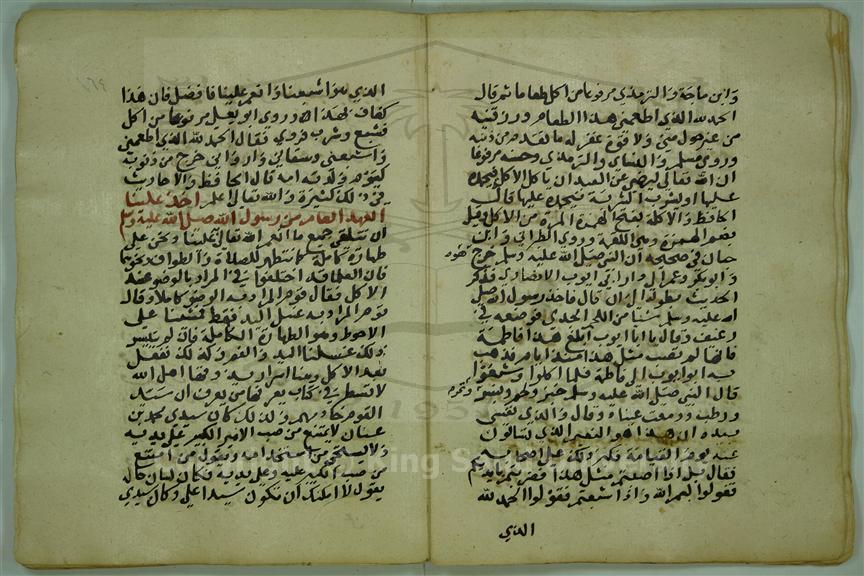 وابن ماجة والترمذي مرفوعا من اكل طعاما ثم قال
الحمد لله الذي اطعمني هذا الطعام ورزقنيه
من غير حول مني ولا قوة غفر له ما تقدم من ذنبه
وروى مسلم والنسائي والترمذي وحسنه مرفوعا
ان الله تعالى ليرضى عن العبد ان ياكل الاكلة فيحمده
عليها او يشرب الشربة فيحمده عليها قال
الحافظ والاكلة بفتح الهمزة المرة من الاكل وقيل
بضم الهمزة وهي اللقمة وروى الطبراني وابن
حبان في صحيحه ان النبي صلى الله عليه وسلم خرج هو
وابو بكر وعمر الى دار ابي ايوب الانصاري فذكر
الحديث بطوله الى ان قال فاخذ رسول الله صلى
الله عليه وسلم شيئا من اللحم الجدي فوضعه في
رغيف وقال يا ابا ايوب ابلغ هذا فاطمة
فانها لم تصب مثل هذا منذ ايام فذهب
به ابو ايوب الى فاطمة فلما اكلوا وشبعوا
قال النبي صلى الله عليه وسلم خبز ولحم وبسر وتمر
ورطب ودمعت عيناه وقال والذي نفسي
بيده ان هذا هو النعيم الذي تسالون
عنه يوم القيامة فكبر ذلك على اصحابه
فقال بل اذا اصبتم مثل هذا فضربتم بايديكم
فقولوا بسم الله واذا شبعتم فقولوا الحمد لله
الذي
الذي هو اشبعنا وانعم علينا فافضل فان هذا
كفاف لهذا وروى ابو يعلى مرفوعا من اكل
فشبع وشرب فروي فقال الحمد لله الذي اطعمني
واشبعني وسقاني واروانى خرج من ذنوبه
كيوم ولدته امه قال الحافظ والاحاديث
في ذلك كثيرة والله تعالى اعلم اخذ علينا
العهد العام من رسول الله صلى الله عليه وسلم
ان نتلقى جميع ما انعم الله تعالى علينا ونحن على
طهارة كاملة كما نتطهر للصلاة والطواف ونحوهما
فان العلما قد اختلفوا في المراد بالوضوء عند
الاكل فقال قوم المراد به الوضوء كاملا وقال
قوم المراد به غسل اليد فقط فمشينا على
الاحوط وهو الطهارة الكاملة فان لم يتيسر
ذلك غسلنا اليد والفم وكذلك نفعل
بعد الاكل وهنا اسرار يذوقها اهل الله
لا تسطر في كتاب يعرفها من يعرف ان سيد
القوم خادمهم ولذلك كان سيدي محمد بن
عنان لا يمتنع من صب الامير الكبير على يديه
ولا يستحي من استخدامه ويقول من امتنع
من صب الكبير عليه وعلى يديه فكان لسان حاله
يقول لا امكنك ان تكون سيدا علي وكان سيدي